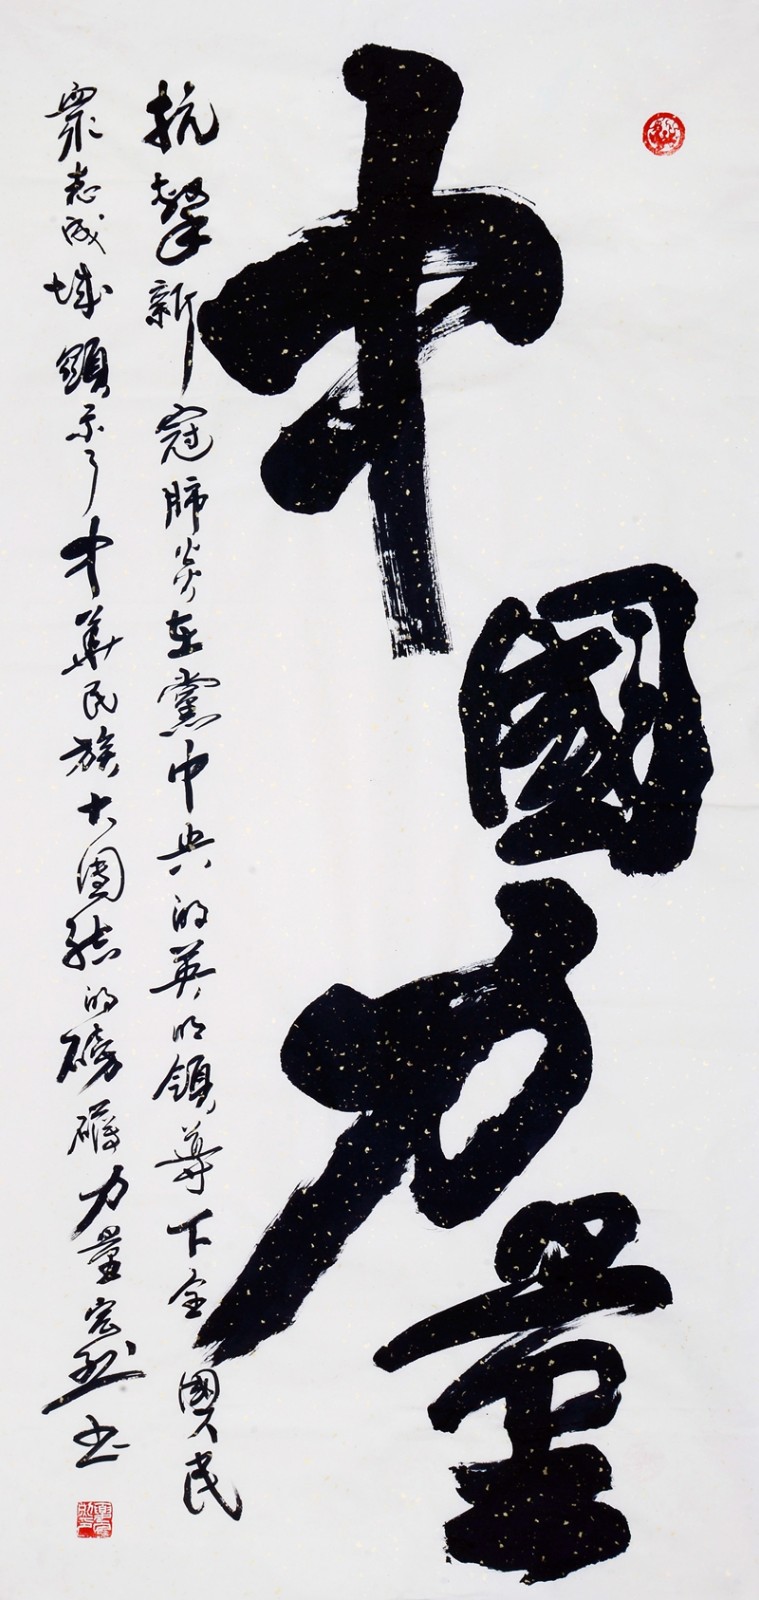 中國力量
抗擊新冠肺炎在黨中央的英明領導下全國人民
眾志成城顯示了中華民族大團結的磅礴力量宏烈書